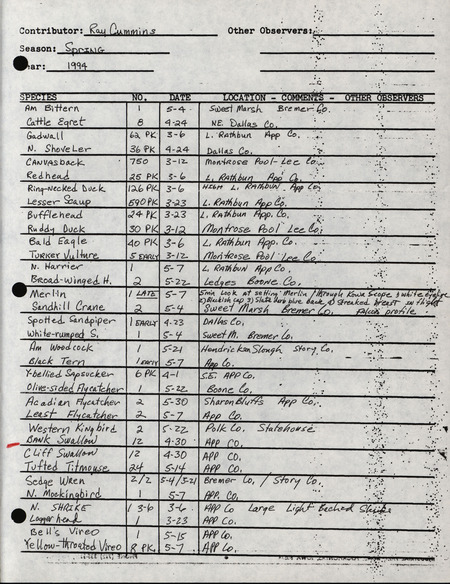 Contributor: Ray Cummins Other Observers:
Season: Spring
Year: 1994
SPECIES NO. DATE LOCATION - COMMENTS - OTHER OBSERVERS
Am Bittern 1 5-4 Sweet Marsh Bremer Co.
Cattle Egret 8 4-24 N.E. Dallas Co.
Gadwall 62 PK 3-6 L. Rathbun App Co.
N. Shoveler 36 PK 4-24 Dallas Co.
Canvasback 750 3-12 Montrose Pool - Lee Co.
Redhead 25 PK 3-6 L. Rathbun App Co.
Ring-Necked Duck 126 PK 3-6 L. Rathbun App Co.
Lesser Scaup 590 PK 3-23 L. Rathbun App Co.
Bufflehead 24 PK 3-23 L. Rathbun App. Co.
Ruddy Duck 30 PK 3-12 Montrose Pool Lee Co.
Bald Eagle 40 PK 3-6 L. Rathbun App. Co.
Turkey Vulture 5 Early 3-12 Montrose Pool Lee Co.
N. Harrier 1 5-7 L. Rathbun App Co.
Broad-Winged H. 2 5-22 Ledges Boone Co.
Merlin 1 Late 5-7 5min Look at sitting Merlin / through Kowa Scope 1) white eyeline
2) Blackish cap 3) Slate blue back 4) Streaked breast in flight
Sandhill Crane 2 5-4 Sweet Marsh Bremer Co. Falcon profile
Spotted Sandpiper 1 Early 4-23 Dallas Co.
White-rumped S. 1 5-4 Sweet M. Bremer Co.
Am Woodcock 1 5-21 Hendrickson Slough Story Co.
Black Tern 1 Early 5-7 App Co.
Y-bellied Sapsucker 6 PK 4-1 S.E. App Co.
Olive-sided Flycatcher 1 5-22 Boone Co.
Acadian Flycatcher 2 5-30 Sharon Bluffs App Co.
Least Flycatcher 2 5-7 App Co.
Western Kingbird 2 5-22 Polk Co. Statehouse
Bank Swallow 12 4-30 App Co.
Cliff Swallow 12 4-30 App Co.
Tufted Titmouse 24 5-14 App Co.
Sedge Wren 2/2 5-4/5-21 Bremer Co. / Story Co.
N. Mockingbird 1 5-7 App. Co.
N. Shrike 1 3-6 3-6 App Co Large Light Backed Shrike
Loggerhead 1 3-23 App Co.
Bell's Vireo 1 5-15 App Co.
Yellow-throated Vireo 8 PK 5-7 App Co.